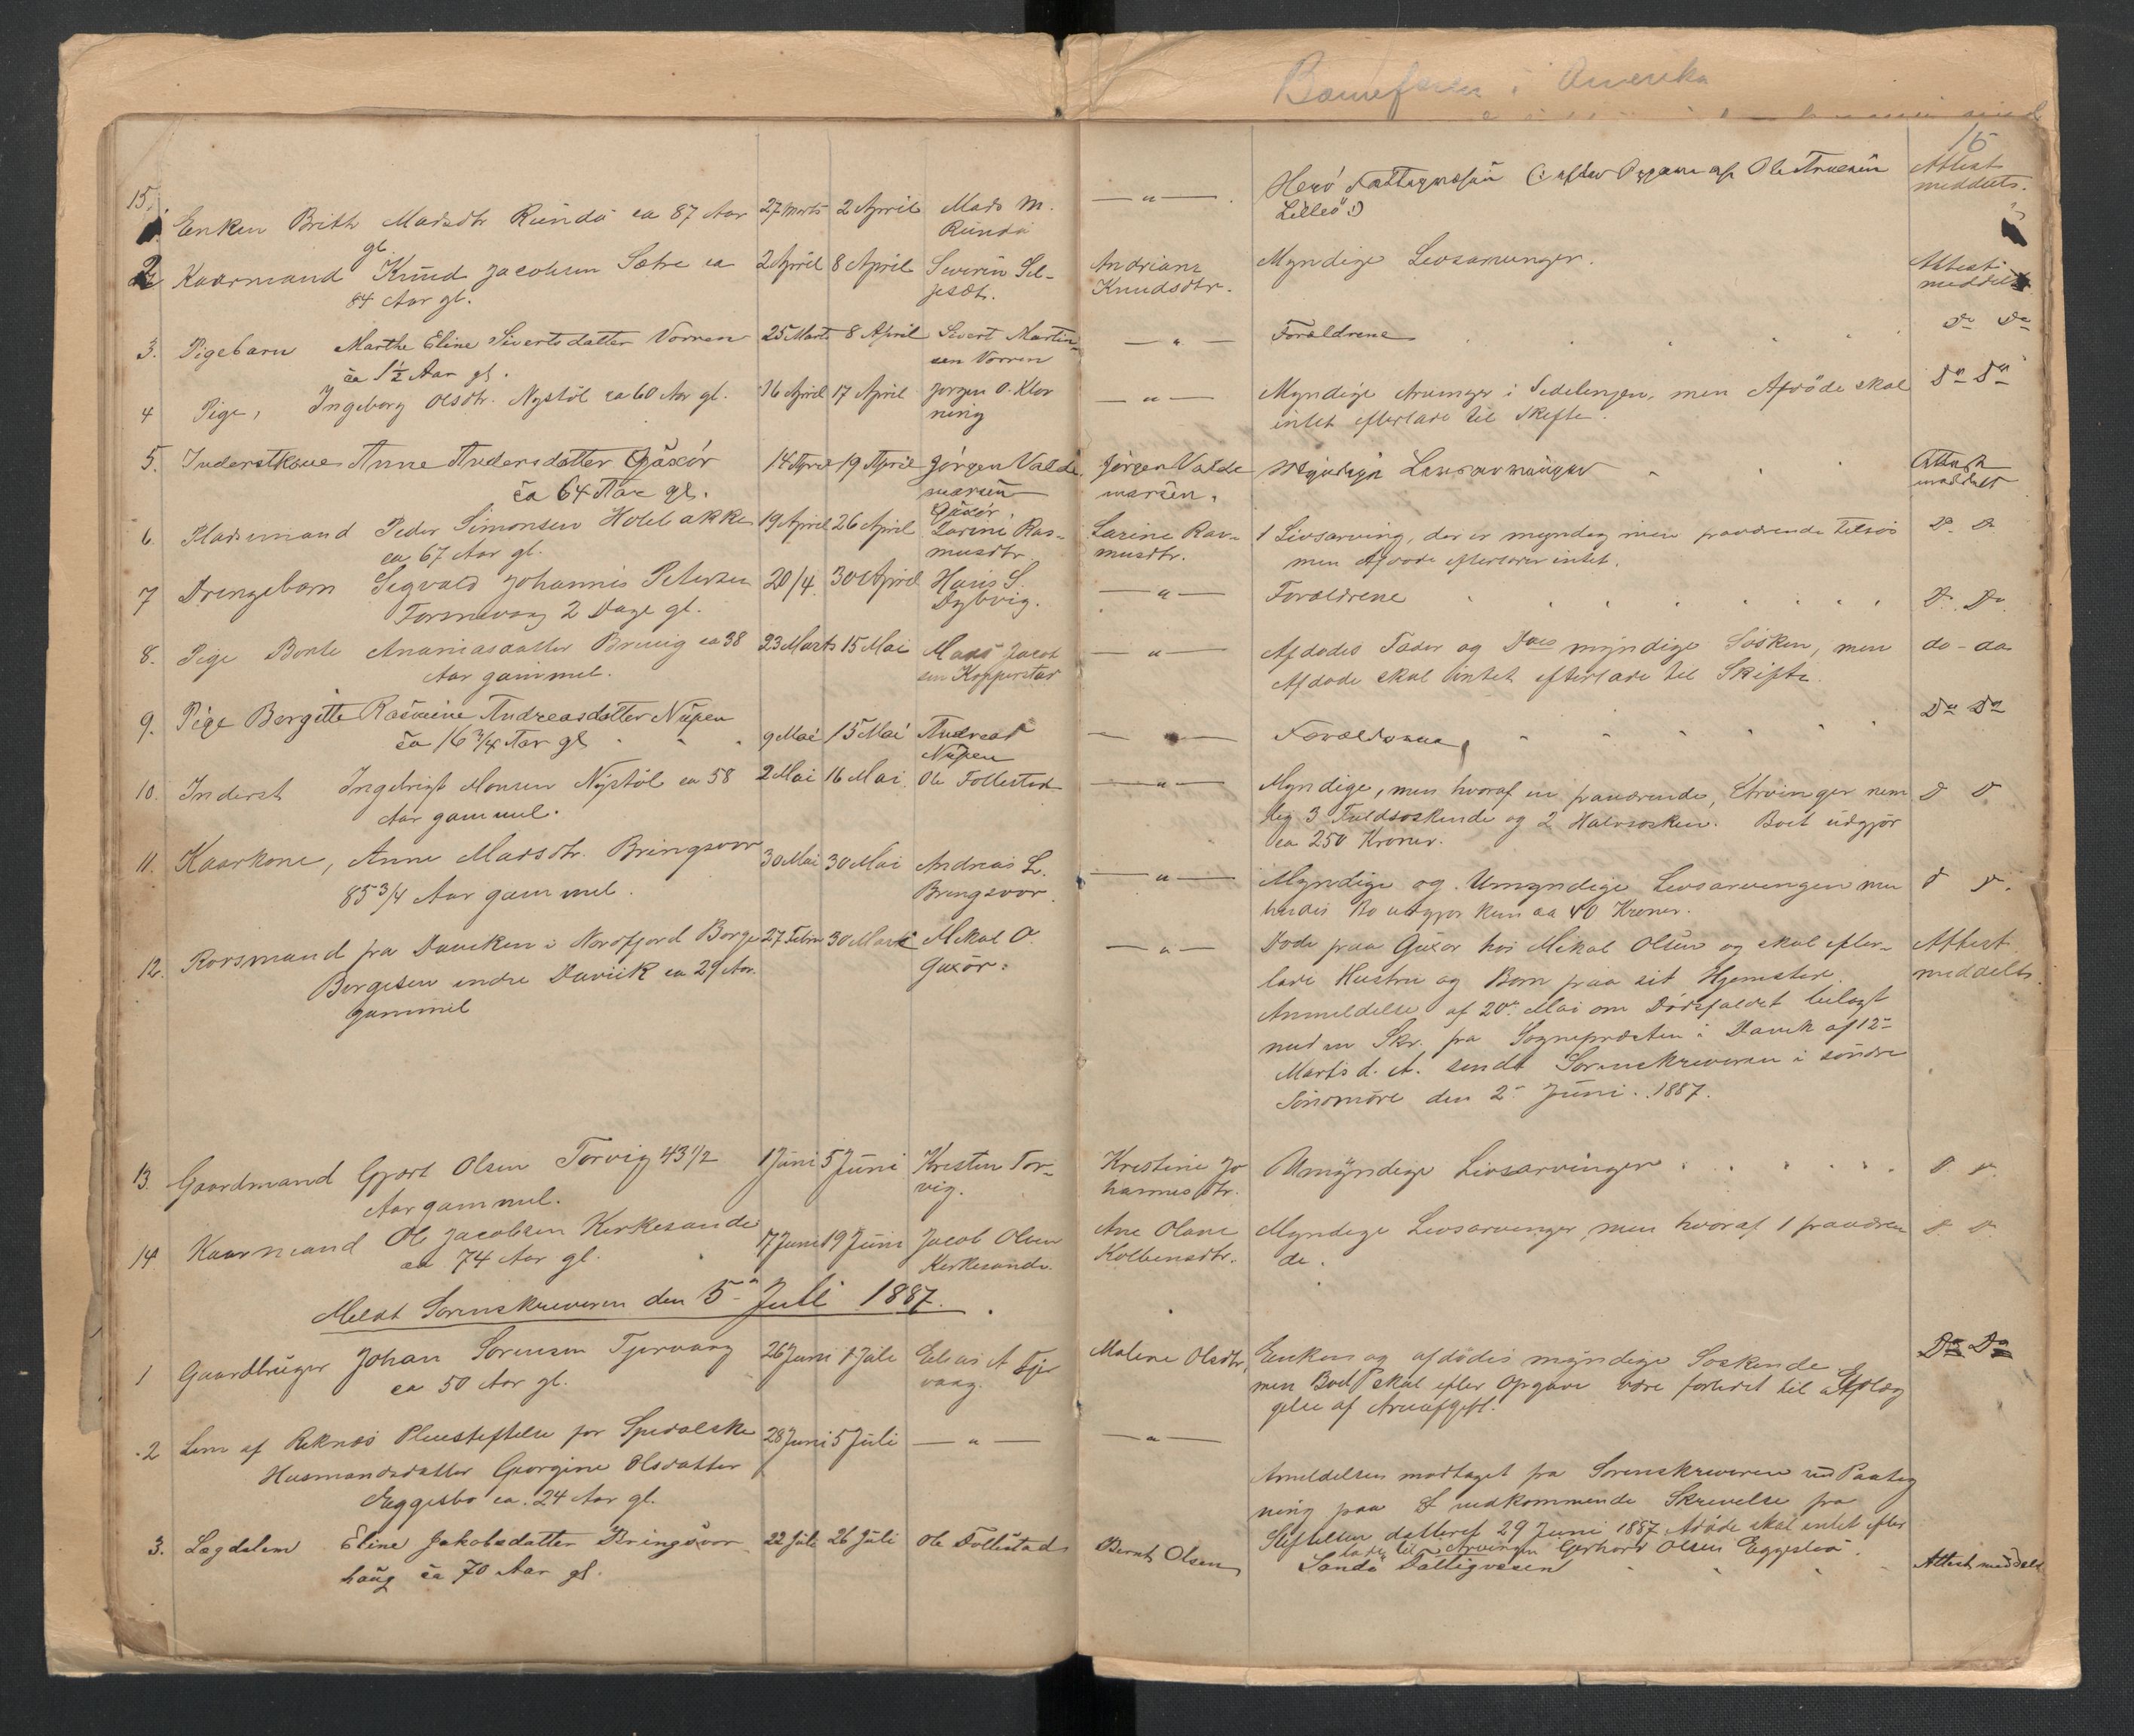 i Amerika
15.
Enken Brith Madsdtr Rundö ca 87 Aar 27 Marts 2 April Mads M. Rundö — " — Herö Fattigvæsen (: efter Opgave af Ole Lilleö :) 16 Attest meddelt.
2 Kaarmand Knud Jacobsen Sætre ca 84 Aar gl. 2 April 8 April Severin Sel- Andriane Knudsdtr. Myndige Livsarvinger. Attest meddelt
3. Pigebarn Marthe Eline Sivertsdatter Vorren ca 1½ Aar gl. 25 Marts 8 April Sivert Martinsen Vorren — " — Forældrene Do Do
4 Pige, Ingeborg Olsdtr. Nystöl ca 60 Aar gl. 16 April 17 April Jørgen O. Kløv ning — " — Myndige Arvinger i Sidelinjen, men Afdöde skal
intet efterlade til Skifte. Do Do
5. Inderstkone Anne Andersdatter Gjüsör ca 64 Aar gl. 14 April 19 April Jörgen Valde marsen Jörgen Valde marsen. Myndige Livsarvinger Attest meddelt
6. Pladsmand Peder Simonsen Holebakke ca 67 Aar gl. 19 April 26 April Larine Rasmusdtr. Larine Rasmusdtr. 1 Livsarving, der er myndig men fraværende tilsøs
men Afdøde efterlader intet. D. D.
7 Drengebarn Sigvald Johannes Petersen 2 Dage gl. 20/4. 30 April Hans S. Dybvig. — " — Forældrene Do. Do.
8. Pige Berte Ananiasdatter ca 38 Aar gammel. 23 Marts 15 Mai Mads Jacobsen Kopperstad — " — Afdødes Fader og Does myndige Søsken, men
Afdøde skal intet efterlade til Skifte. do - do
9. Pige Bergitte Rasmine Andreasdatter Nüpen ca 16 3/4 Aar gl. 9 Mai 15 Mai Andreas Nüpen — " — Forældrene, Do Do
10. Inderst Ingebrigt Monsen Nystöl ca 58 Aar gammel. 2 Mai 16 Mai Ole Follestad — " — Myndige, men hvoraf en fraværende, Arvinger nem
lig 3 Fuldsøskende og 2 Halvsøsken. Boet udgjør
ca 250 Kroner. D D
11. Kaarkone, Anne Madsdtr. Bringsvor 85 3/4 Aar gammel. 30 Mai 30 Mai Andreas L. Bringsvor. — " — Myndige og Umyndige Livsarvinger men
hendes Bo udgjør kun ca 40 Kroner. D D.
12. Rorsmand fra Daviken i Nordfjord Børge Børgesen indre Daviik ca 29 Aar. gammel 27 Febru 30 Marts Mekal O. Guxör. — " — Döde paa Guxør hos Mekal Olsen og skal efter-
lade Hustru og Børn paa sit Hjemsted.
Anmeldelse af 20de Mai om Dødsfaldet bilagt
med en Skr. fra Sognepræsten i Davik af 12te
Marts d. A. sendt Sorenskriveren i söndre
Söndmöre den 2den Juni. 1887. Attest meddelt.
13. Gaardmand Gjert Olsen Torvig 43 1/2 Aar gammel. 1 Juni 5 Juni Kresten Torvig. Kristine Johannesdtr. Umyndige Livsarvinger D. D.
14 Kaarmand Ole Jacobsen Kirkesande ca 74 Aar gl. 17 Juni 19 Juni Jacob Olsen Kirkesande. Ane Olave Kolbensdtr. Myndige Livsarvinger, men hvoraf 1 fraværen
de. D. D.
Meldt Sorenskriveren den 5te Juli 1887.
1 Gaardbruger Johan Sørensen Tjervaag ca 50 Aar gl. 26 Juni 1 Juli Elias A Tjervaag. Malene Olsdtr, Enken og afdødes myndige Søskende
men Boet skal efter Opgave være forlidet til
gelse af Arveafgift. Do Do
2 Lem af Reknæs Pleiestiftelse for Spedalske
Husmandsdatter Georgine Olsdatter
Eggesbø ca. 24 Aar gl. 28 Juni 5 Juli — " — — " — Anmeldelsen modtaget fra Sorenskriveren ved Paateg
ning paa et vedkommende Skrivelse fra
Stiftelsen datteret 29 Juni 1887. Afdøde skal intet efter
lade til Arvingen Gerhard Olsen Eggesbø.
3. Lægdslem Eline Jakobsdatter Bringsvor haug ca 70 Aar gl. 22 Juli 26 Juli Ole Follestad Bernt Olsen Sandö Fattigvesen Attest meddelt